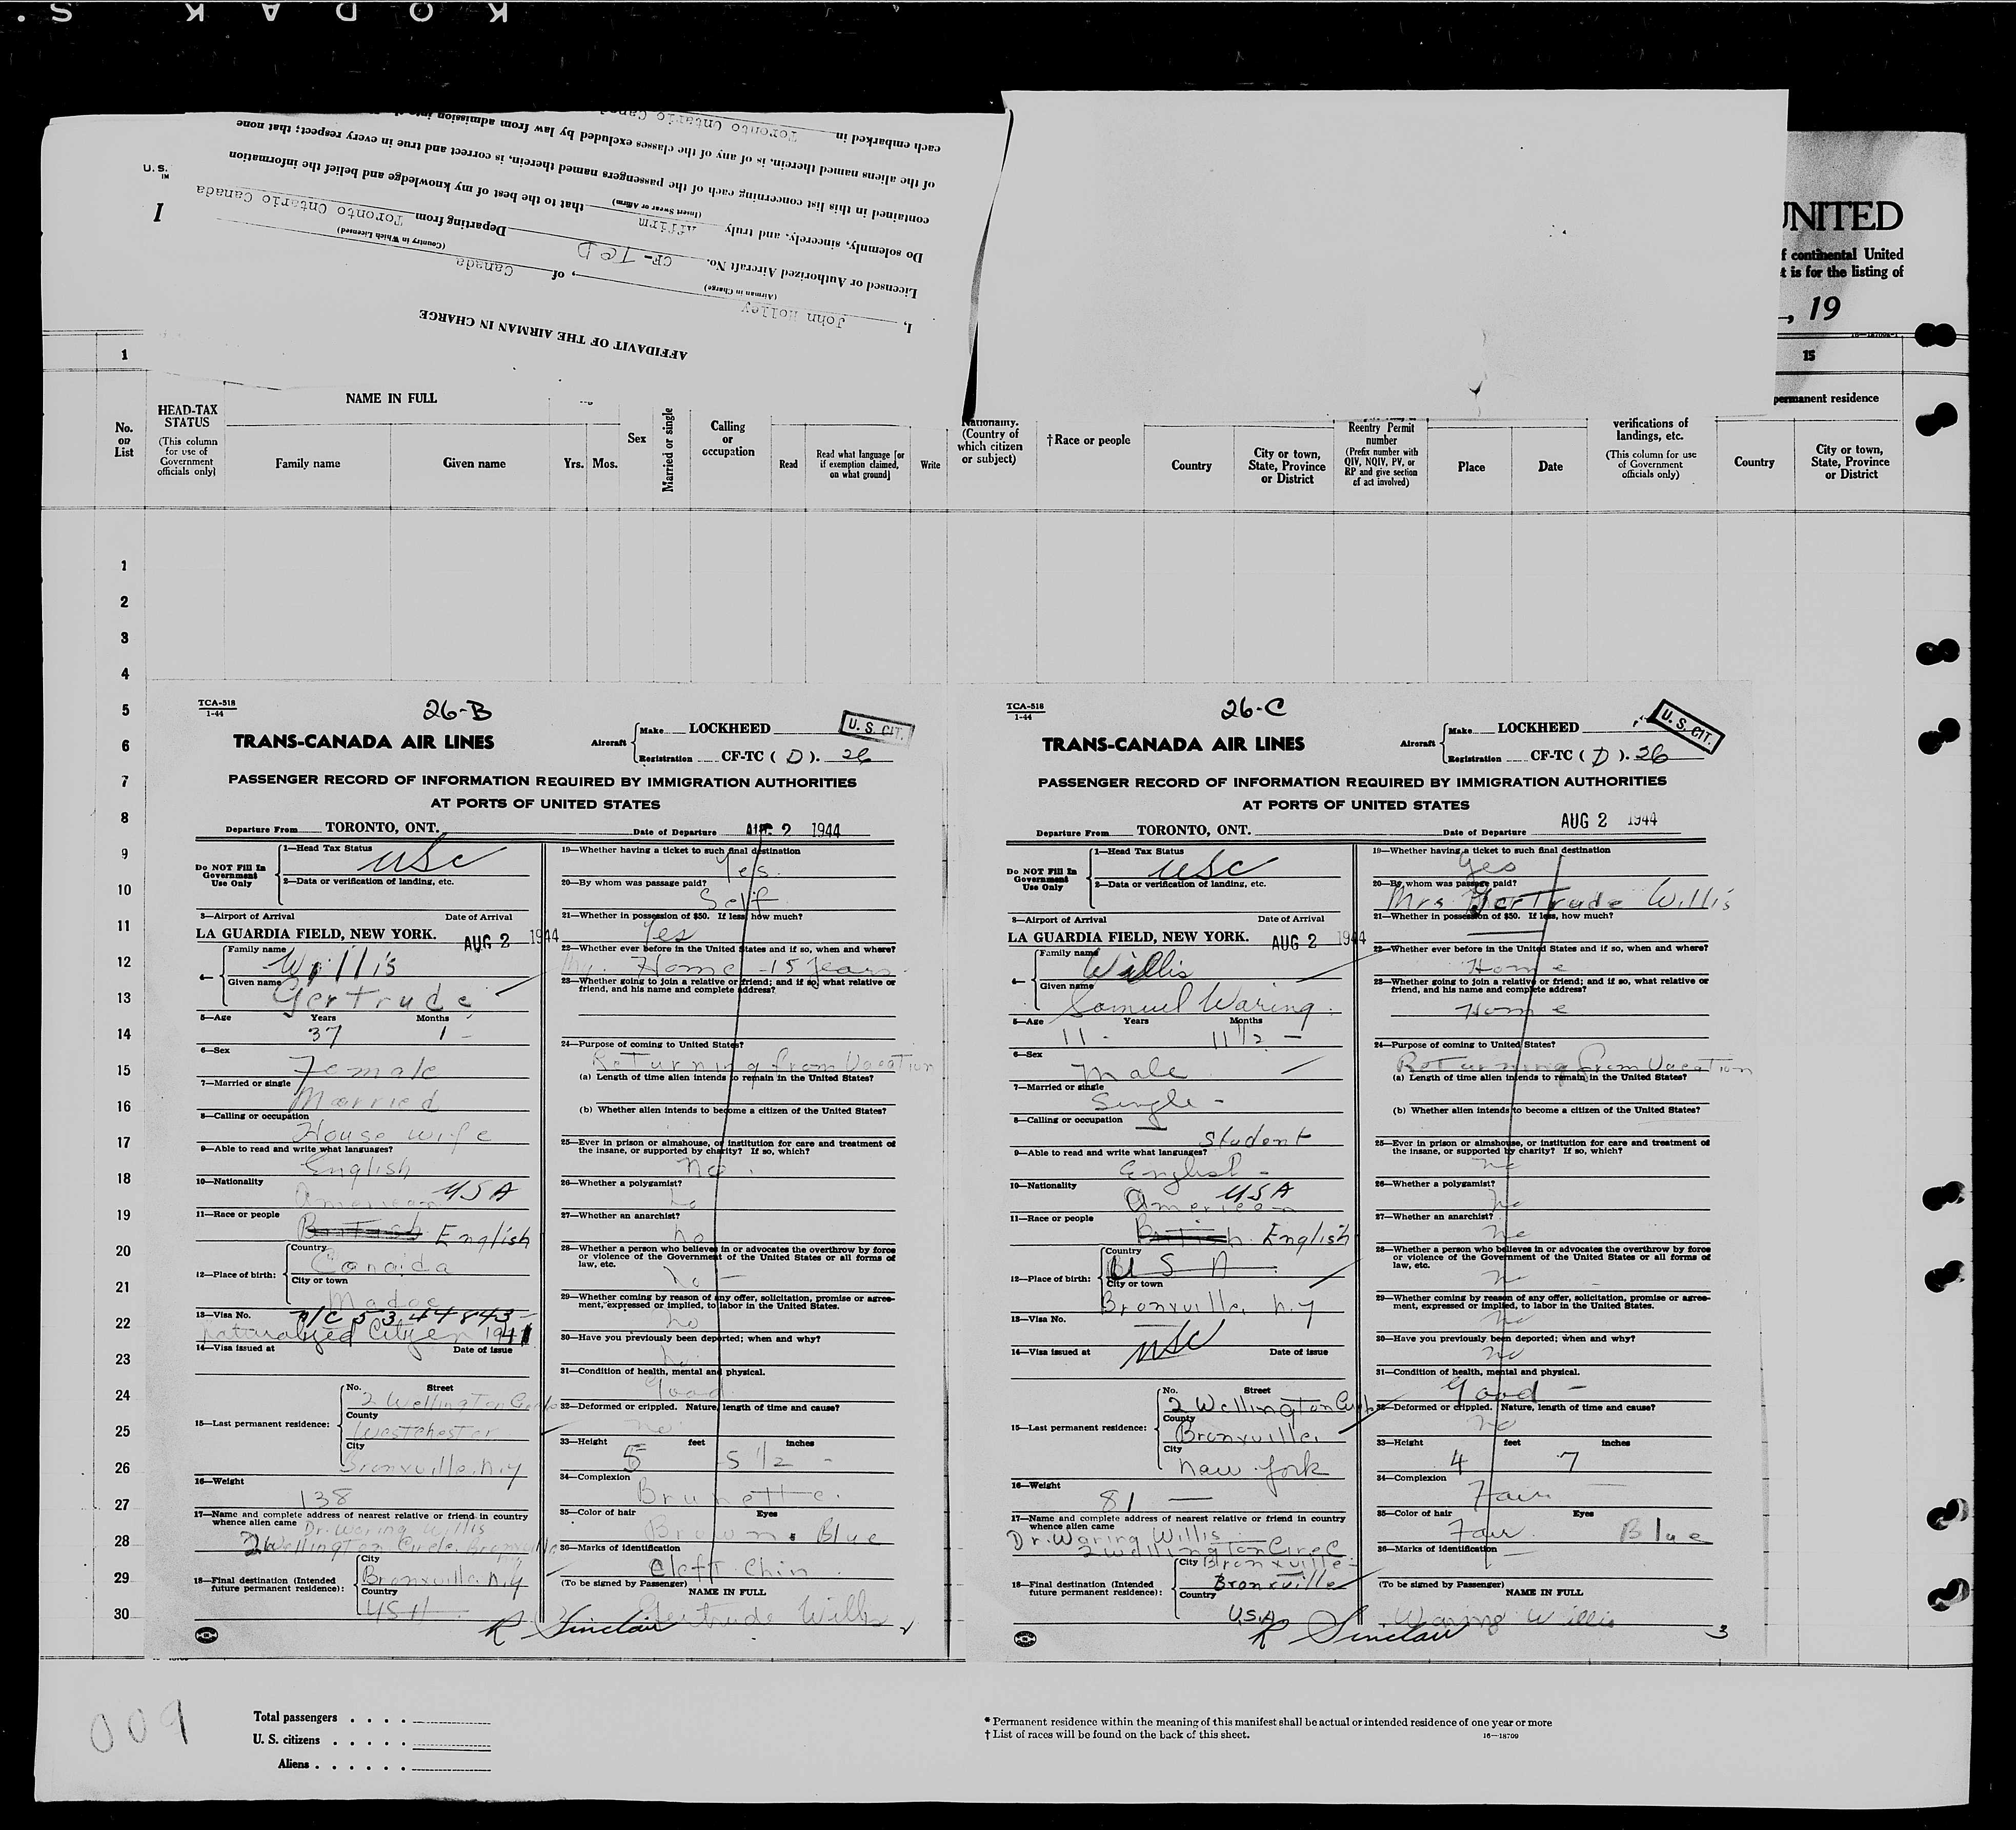 KODAK S.
U. S.
IN
1
AFFIDAVIT OF THE AIRMAN IN CHARGE
I, John Holley
(Airman in Charge)
Licensed or Authorized Aircraft No. CF-TCD, of Canada
(Country in Which Licensed)
Departing from Toronto Ontario Canada
Do solemnly, sincerely, and truly Affirm that to the best of my knowledge and belief the information
(Insert Swear or Affirm)
contained in this list concerning each of the passengers named therein, is correct and true in every respect; that none
of the aliens named therein, is of any of the classes excluded by law from admission
each embarked in Toronto Ontario
UNITED
f continental United
t is for the listing of
, 19
1
15
NAME IN FULL
permanent residence
No. on List
HEAD-TAX STATUS
(This column for use of Government officials only)
Family name
Given name
Yrs. Mos.
Sex
Married or single
Calling or occupation
Read
Read what language [or if exemption claimed, on what ground]
Write
Nationality. (Country of which citizen or subject)
†Race or people
Country
City or town, State, Province or District
Reentry Permit number
(Prefix number with QIV, NQIV, PV, or RP and give section of act involved)
Place
Date
verifications of landings, etc.
(This column for use of Government officials only)
Country
City or town, State, Province or District
1
2
3
4
5
6
7
8
9
10
11
12
13
14
15
16
17
18
19
20
21
22
23
24
25
26
27
28
29
30
TCA-518
1-44
26-B
TRANS-CANADA AIR LINES
Aircraft
Make LOCKHEED
Registration CF-TC ( D ). 26
U. S. CIT.
PASSENGER RECORD OF INFORMATION REQUIRED BY IMMIGRATION AUTHORITIES
AT PORTS OF UNITED STATES
Departure From TORONTO, ONT. Date of Departure AUG 2 1944
Do NOT Fill In Government Use Only
1—Head Tax Status
USC
2—Data or verification of landing, etc.
3—Airport of Arrival Date of Arrival
LA GUARDIA FIELD, NEW YORK. AUG 2 1944
4—
Family name
Willis
Given name
Gertrude
5—Age Years Months
37 1 -
6—Sex
Female
7—Married or single
Married
8—Calling or occupation
House wife
9—Able to read and write what languages?
English
10—Nationality
American USA
11—Race or people
British English
12—Place of birth:
Country
Canada
City or town
Madoc
13—Visa No. N/C 5344843
naturalized Citizen 1941
14—Visa issued at Date of issue
15—Last permanent residence:
No. Street
2 Wellington Circle
County
Westchester
City
Bronxville N.Y
16—Weight
138
17—Name and complete address of nearest relative or friend in country whence alien came
Dr. Waring Willis
2 Wellington Circle Bronxville
18—Final destination (Intended future permanent residence):
City
Bronxville N.Y
Country
USA
19—Whether having a ticket to such final destination
Yes.
20—By whom was passage paid?
Self
21—Whether in possession of $50. If less, how much?
Yes
22—Whether ever before in the United States and if so, when and where?
My Home - 15 years
23—Whether going to join a relative or friend; and if so, what relative or friend, and his name and complete address?
24—Purpose of coming to United States?
Returning from Vacation
(a) Length of time alien intends to remain in the United States?
(b) Whether alien intends to become a citizen of the United States?
25—Ever in prison or almshouse, or institution for care and treatment of the insane, or supported by charity? If so, which?
no.
26—Whether a polygamist?
no
27—Whether an anarchist?
no
28—Whether a person who believes in or advocates the overthrow by force or violence of the Government of the United States or all forms of law, etc.
no —
29—Whether coming by reason of any offer, solicitation, promise or agreement, expressed or implied, to labor in the United States.
no
30—Have you previously been deported; when and why?
no
31—Condition of health, mental and physical.
Good
32—Deformed or crippled. Nature, length of time and cause?
no
33—Height feet inches
5 5 1/2 -
34—Complexion
Brunette.
35—Color of hair Eyes
Brown. Blue
36—Marks of identification
Cleft Chin
(To be signed by Passenger) NAME IN FULL
Gertrude Willis
R Sinclair
2
TCA-518
1-44
26-C
TRANS-CANADA AIR LINES
Aircraft
Make LOCKHEED
Registration CF-TC ( D ). 26
U. S. CIT.
PASSENGER RECORD OF INFORMATION REQUIRED BY IMMIGRATION AUTHORITIES
AT PORTS OF UNITED STATES
Departure From TORONTO, ONT. Date of Departure AUG 2 1944
Do NOT Fill In Government Use Only
1—Head Tax Status
USC
2—Data or verification of landing, etc.
3—Airport of Arrival Date of Arrival
LA GUARDIA FIELD, NEW YORK. AUG 2 1944
4—
Family name
Willis
Given name
Samuel Waring.
5—Age Years Months
11 - 11 1/2 -
6—Sex
Male
7—Married or single
Single -
8—Calling or occupation
Student
9—Able to read and write what languages?
English -
10—Nationality
American USA
11—Race or people
British English
12—Place of birth:
Country
U S A
City or town
Bronxville, N.Y
13—Visa No.
USC
14—Visa issued at Date of issue
15—Last permanent residence:
No. Street
2 Wellington Circle
County
Bronxville,
City
New York
16—Weight
81 —
17—Name and complete address of nearest relative or friend in country whence alien came
Dr. Waring Willis
2 Wellington Circle
18—Final destination (Intended future permanent residence):
City Bronxville
Bronxville
Country
U.S.A
19—Whether having a ticket to such final destination
Yes
20—By whom was passage paid?
Mrs Gertrude Willis
21—Whether in possession of $50. If less, how much?
22—Whether ever before in the United States and if so, when and where?
Home
23—Whether going to join a relative or friend; and if so, what relative or friend, and his name and complete address?
Home
24—Purpose of coming to United States?
Returning from Vacation
(a) Length of time alien intends to remain in the United States?
(b) Whether alien intends to become a citizen of the United States?
25—Ever in prison or almshouse, or institution for care and treatment of the insane, or supported by charity? If so, which?
no
26—Whether a polygamist?
no
27—Whether an anarchist?
no
28—Whether a person who believes in or advocates the overthrow by force or violence of the Government of the United States or all forms of law, etc.
no
29—Whether coming by reason of any offer, solicitation, promise or agreement, expressed or implied, to labor in the United States.
no
30—Have you previously been deported; when and why?
no
31—Condition of health, mental and physical.
Good —
32—Deformed or crippled. Nature, length of time and cause?
no
33—Height feet inches
4 7
34—Complexion
Fair
35—Color of hair Eyes
Fair. Blue
36—Marks of identification
(To be signed by Passenger) NAME IN FULL
Waring Willis
R Sinclair
3
009
Total passengers . . . .
U. S. citizens . . . . .
Aliens . . . . . .
* Permanent residence within the meaning of this manifest shall be actual or intended residence of one year or more
† List of races will be found on the back of this sheet.
16—18709